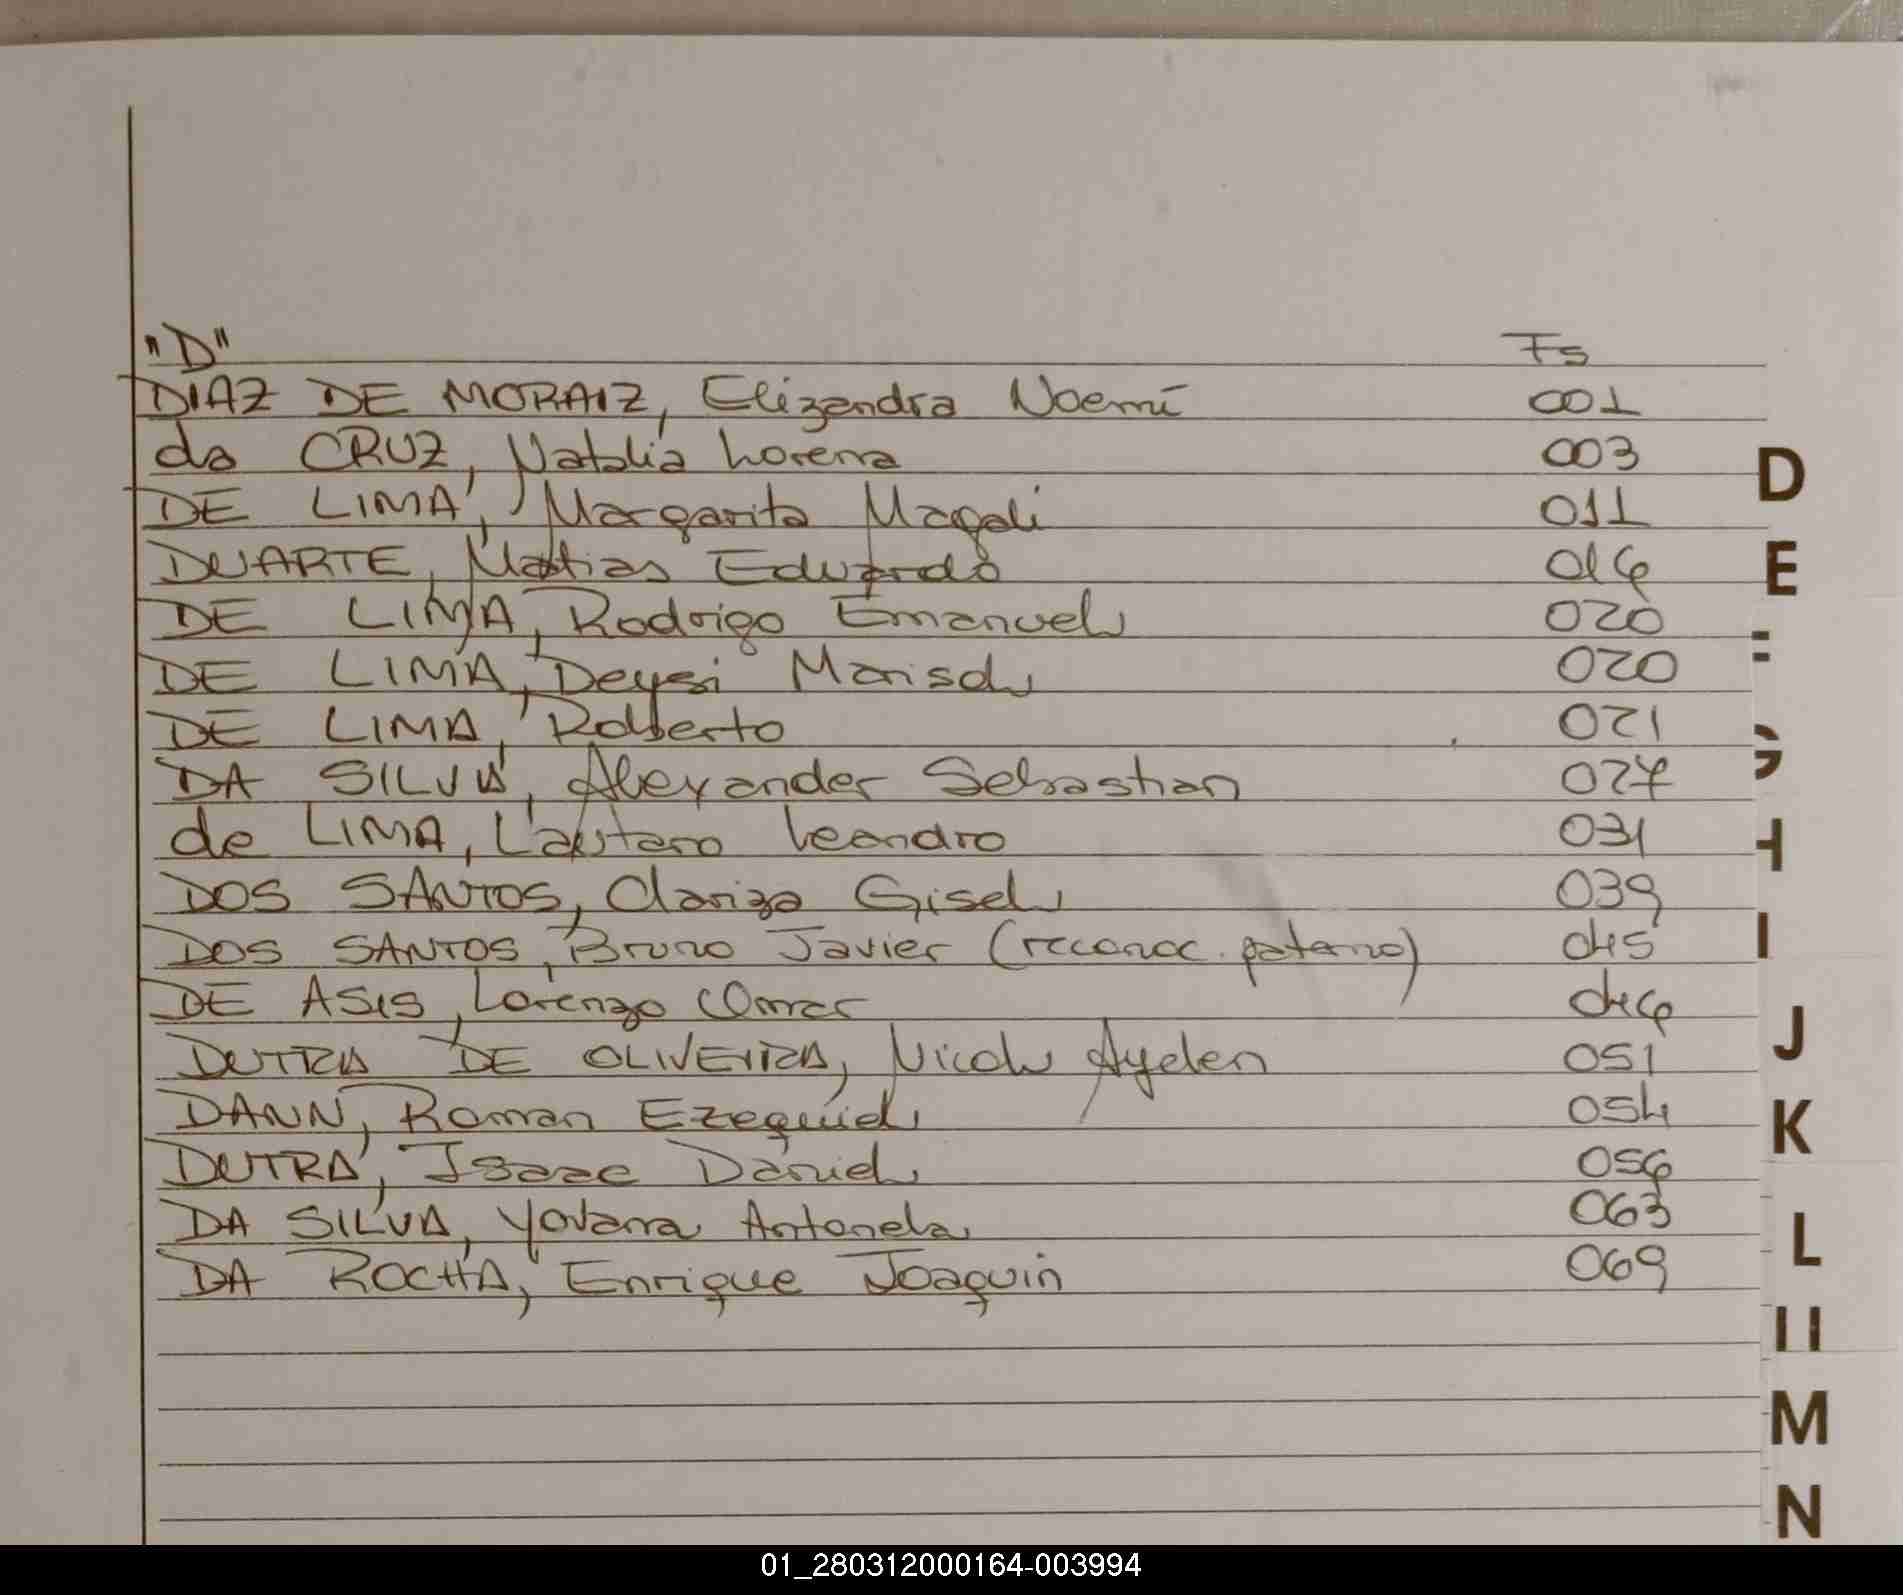 "D" Fs
DIAZ DE MORAIZ, Elizandra Noemí 001
da CRUZ, Natalia Lorena 003
DE LIMA, Margarita Magali 011
DUARTE, Matias Eduardo 016
DE LIMA, Rodrigo Emanuel 020
DE LIMA, Deysi Marisol 020
DE LIMA, Roberto 021
DA SILVA, Alexander Sebastian 027
de LIMA, Lautaro Leandro 031
DOS SANTOS, Clariza Gisel 039
DOS SANTOS, Bruno Javier (reconoc. paterno) 045
DE ASIS, Lorenzo Omar 046
DUTRA DE OLIVEIRA, Nicol Ayelen 051
DANN, Roman Ezequiel 054
DUTRA, Isaac Daniel 056
DA SILVA, Yovana Antonela 063
DA ROCHA, Enrique Joaquin 069
D
E
I
J
K
L
M
N
01_280312000164-003994